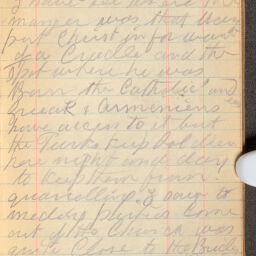 manger was that they
put Christ in for want
of a Cradle and the
spot where he was
Born the Catholics and
Greek & Armeniens
have access to it but
the Turks keep soldiers
here night and day
to keep them from
quarrolling. I saw to
come
out of the Church was
quite Close to the